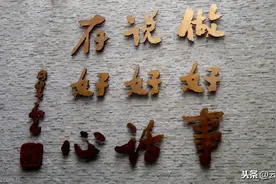 做好事
说好话
存好心
头条 @z